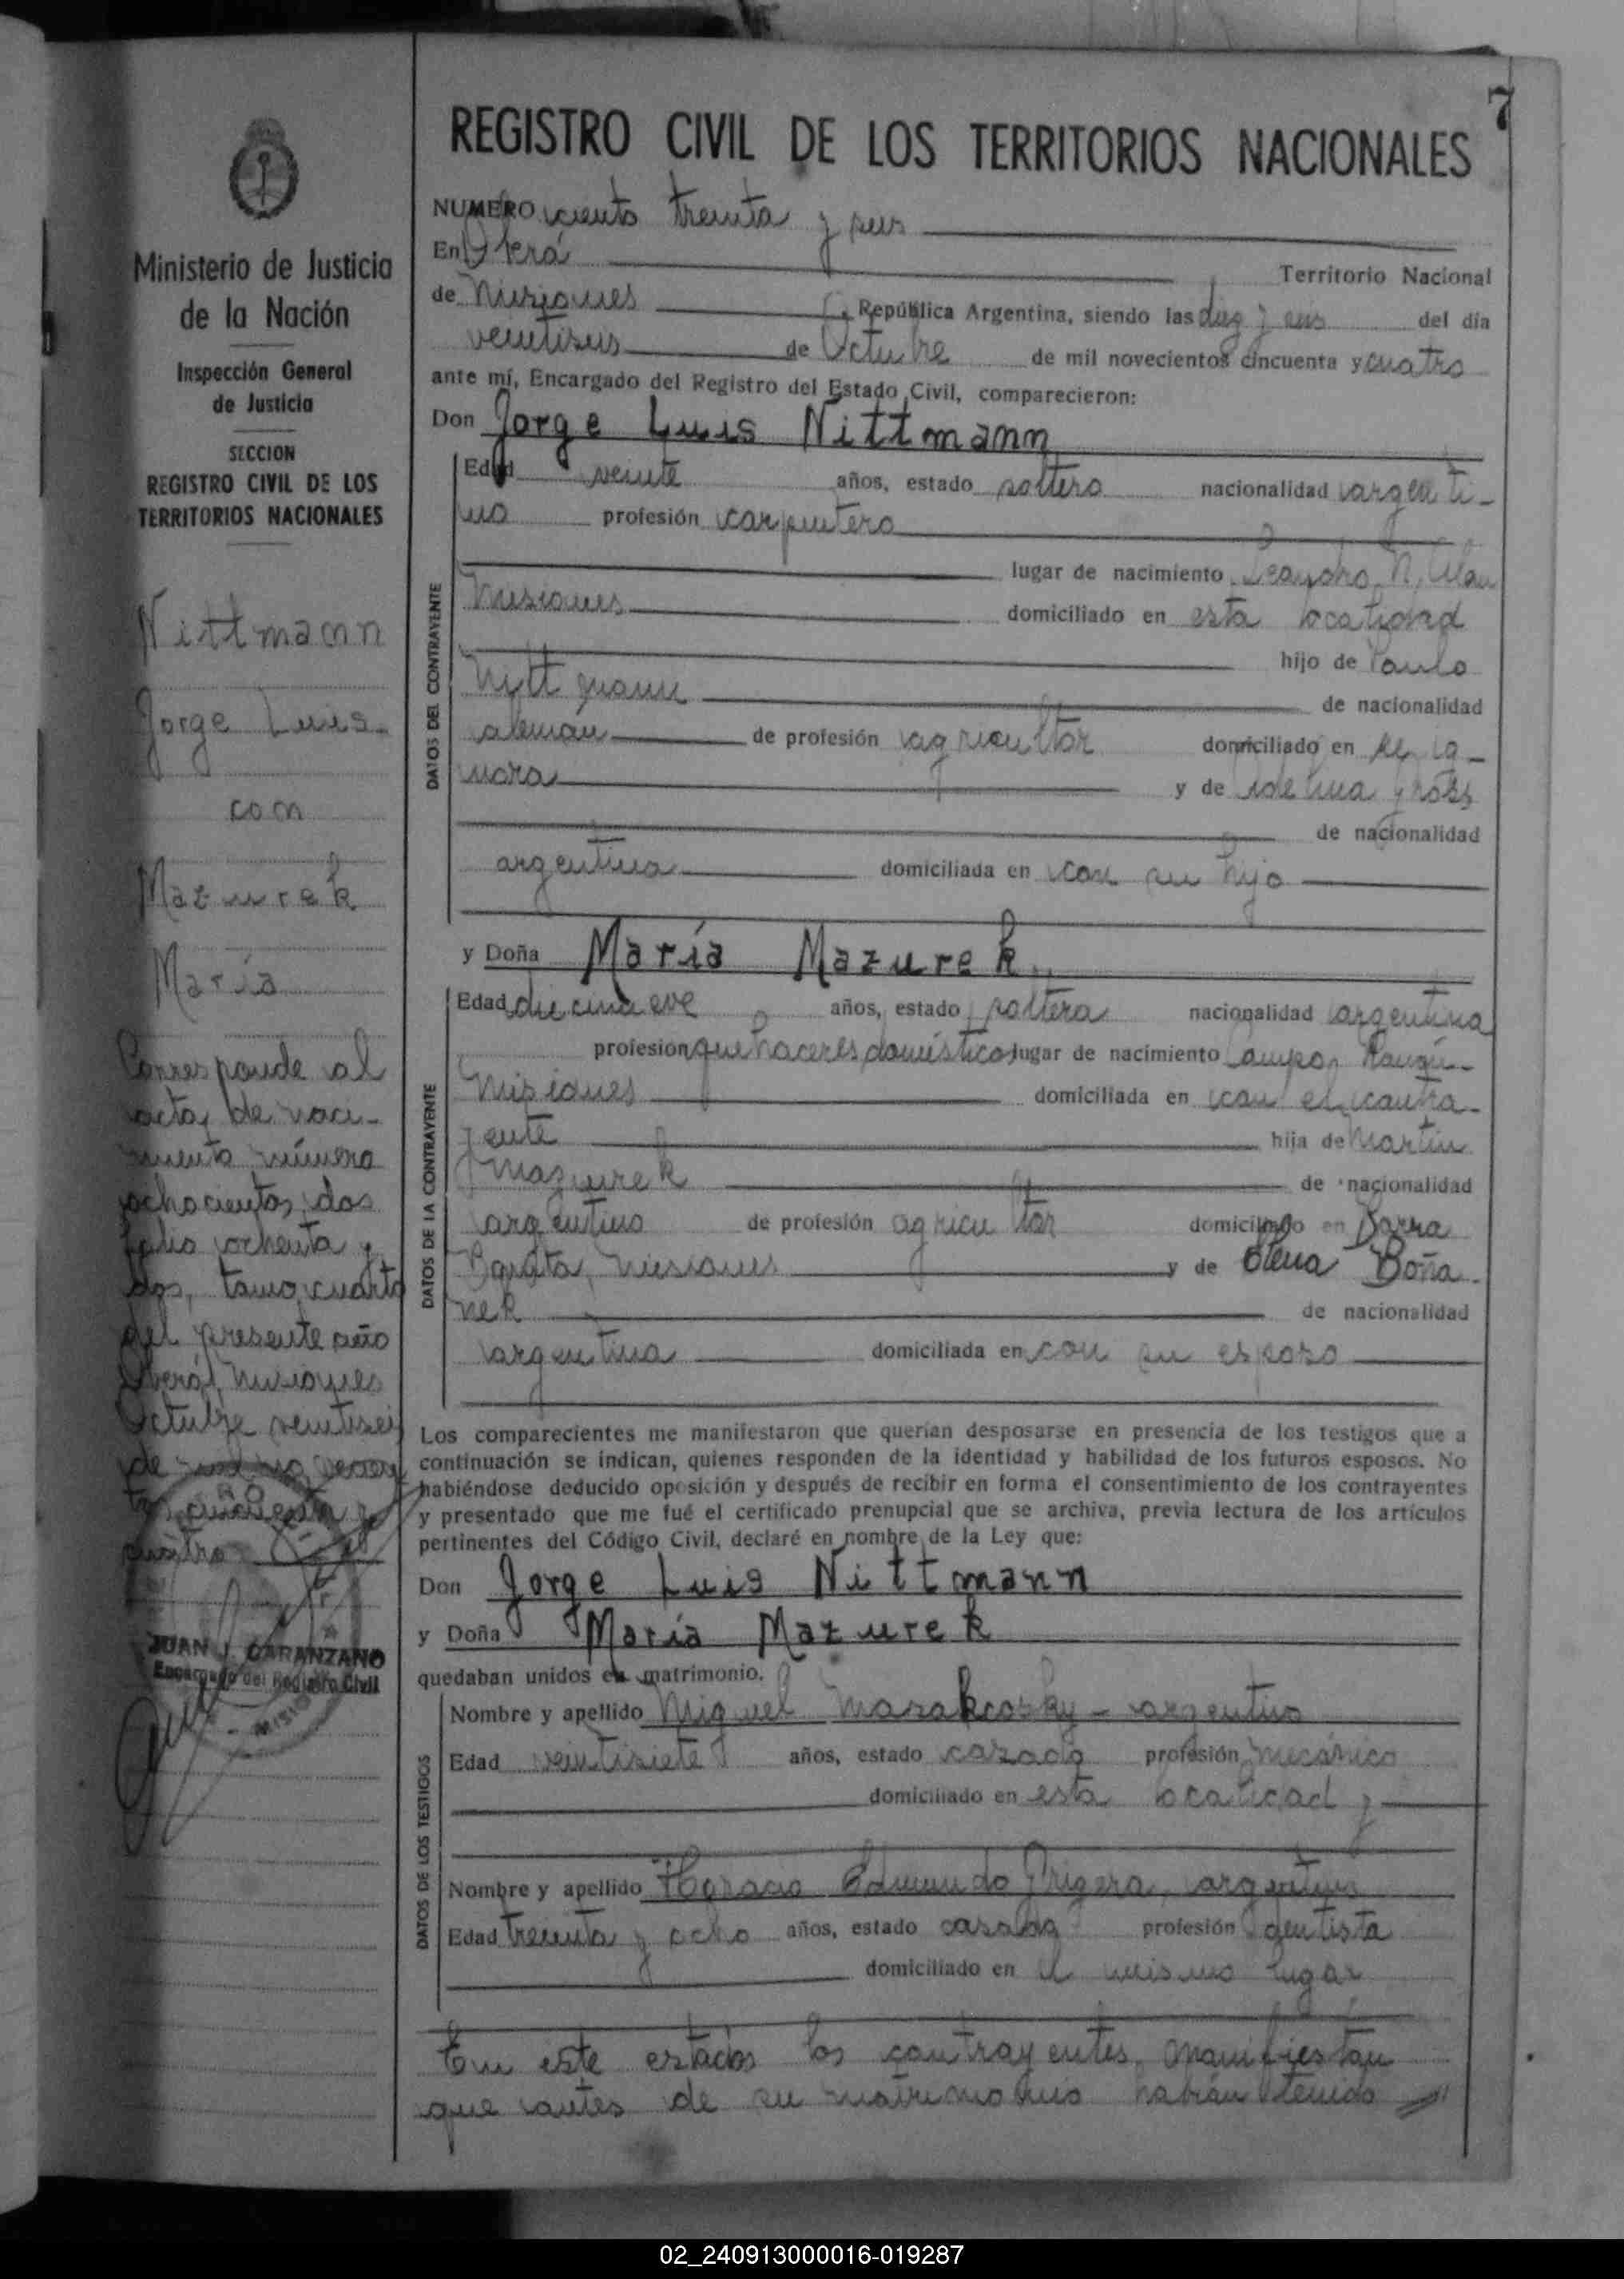 7
REGISTRO CIVIL DE LOS TERRITORIOS NACIONALES
Ministerio de Justicia
de la Nación
Inspección General
de Justicia
SECCION
REGISTRO CIVIL DE LOS
TERRITORIOS NACIONALES
Nittmann
Jorge Luis
con
Mazurek
María
Corresponde al
acta de naci-
miento número
ochocientos dos
folio ochenta y
dos, tomo cuarto
del presente año
Oberá, Misiones
Octubre veintiseis
de mil novecien
tos cincuenta y
cuatro
JUAN J. GARANZANO
Encargado del Registro Civil
NUMERO ciento treinta y seis
En Oberá Territorio Nacional
de Misiones, República Argentina, siendo las diez y seis del día
veintiseis de Octubre de mil novecientos cincuenta y cuatro
ante mí, Encargado del Registro del Estado Civil, comparecieron:
Don Jorge Luis Nittmann
DATOS DEL CONTRAYENTE
Edad veinte años, estado soltero nacionalidad argenti-
no profesión carpintero
lugar de nacimiento Leandro N. Alem
Misiones domiciliado en esta localidad
hijo de Paulo
Nittmann de nacionalidad
alemán de profesión agricultor domiciliado en se ig-
nora y de
de nacionalidad
argentina domiciliada en con su hijo
y Doña María Mazurek
DATOS DE LA CONTRAYENTE
Edad diecinueve años, estado soltera nacionalidad argentina
profesión quehaceres domésticos lugar de nacimiento Campo Ramón-
Misiones domiciliada en con el contra-
yente hija de Martín
Mazurek de nacionalidad
argentino de profesión agricultor domiciliado en Barra
Bonita, Misiones y de Olena Boña-
nek de nacionalidad
argentina domiciliada en con su esposo
Los comparecientes me manifestaron que querían desposarse en presencia de los testigos que a
continuación se indican, quienes responden de la identidad y habilidad de los futuros esposos. No
habiéndose deducido oposición y después de recibir en forma el consentimiento de los contrayentes
y presentado que me fué el certificado prenupcial que se archiva, previa lectura de los artículos
pertinentes del Código Civil, declaré en nombre de la Ley que:
Don Jorge Luis Nittmann
y Doña María Mazurek
quedaban unidos en matrimonio.
DATOS DE LOS TESTIGOS
Nombre y apellido Miguel - argentino
Edad veintisiete años, estado casado profesión mecánico
domiciliado en esta localidad y
Nombre y apellido Horacio Edmundo Frigera, argentino
Edad treinta y ocho años, estado casado profesión dentista
domiciliado en el mismo lugar
En este estado los contrayentes manifiestan
que antes de su matrimonio habían tenido
02_240913000016-019287